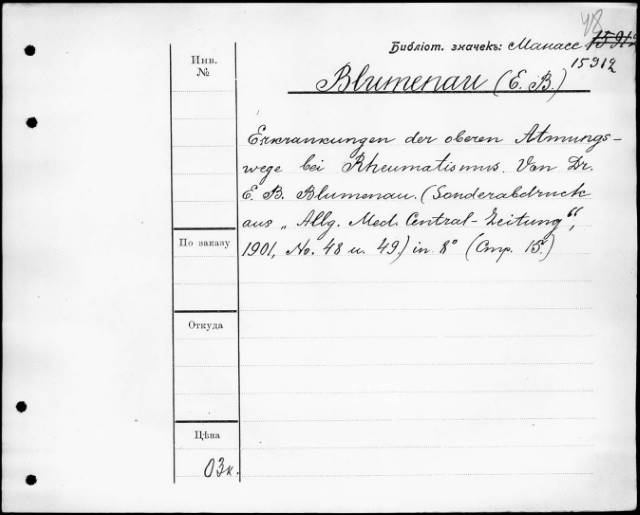 48
Библіот. значекъ: Манассе 15912
15912
Инв.
№
Blumenau (E. B.)
Erkrankungen der oberen Atmungs-
wege bei Rheumatismus. Von Dr.
E. B. Blumenau. (Sonderabdruck
aus „Allg. Med. Central-Zeitung“,
1901, No. 48 u. 49) in 8° (Стр. 15.)
По заказу
Откуда
Цѣна
03к.